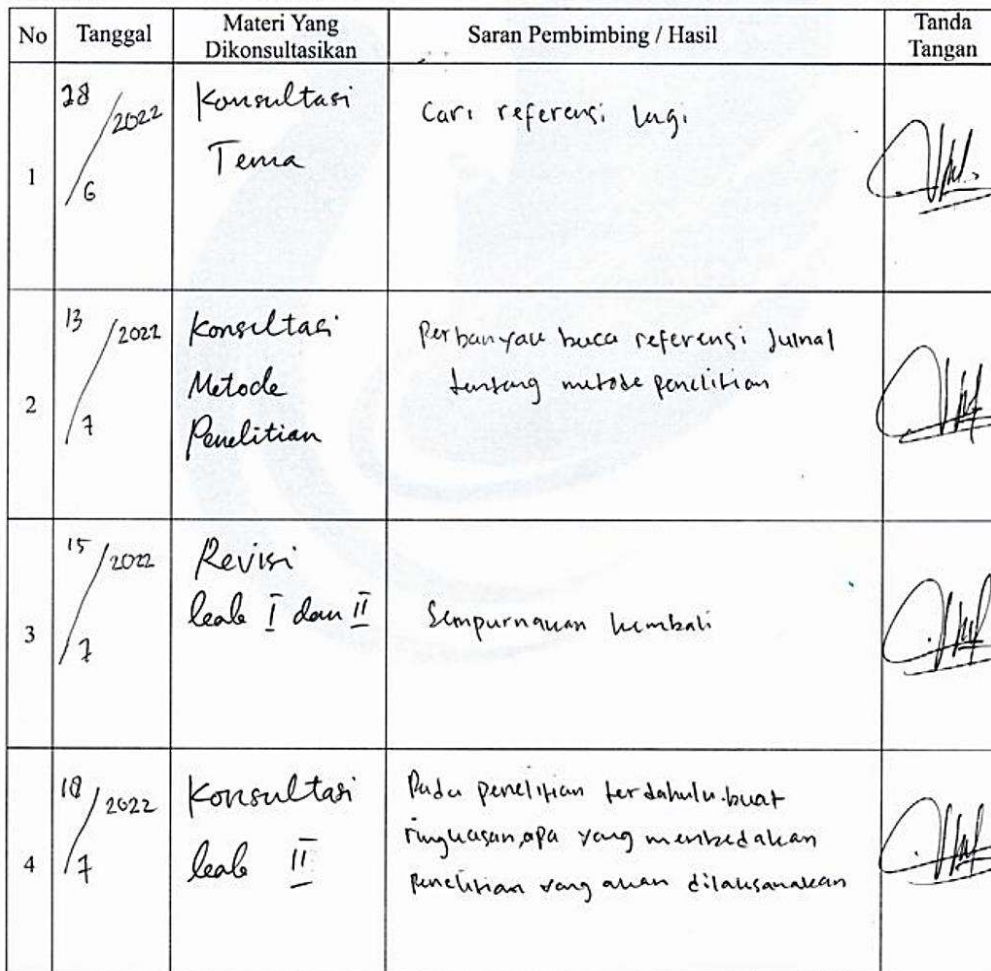 No Tanggal Materi Yang Dikonsultasikan Saran Pembimbing / Hasil Tanda Tangan
1
28/6/2022
Konsultasi
Tema
Cari referensi lagi
2
13/7/2022
Konsultasi
Metode
Penelitian
Perbanyak baca referensi Jurnal
tentang metode penelitian
3
15/7/2022
Revisi
bab I dan II
Sempurnakan kembali
4
18/7/2022
Konsultasi
bab II
Pada penelitian terdahulu buat
ringkasan, apa yang membedakan
penelitian yang akan dilaksanakan